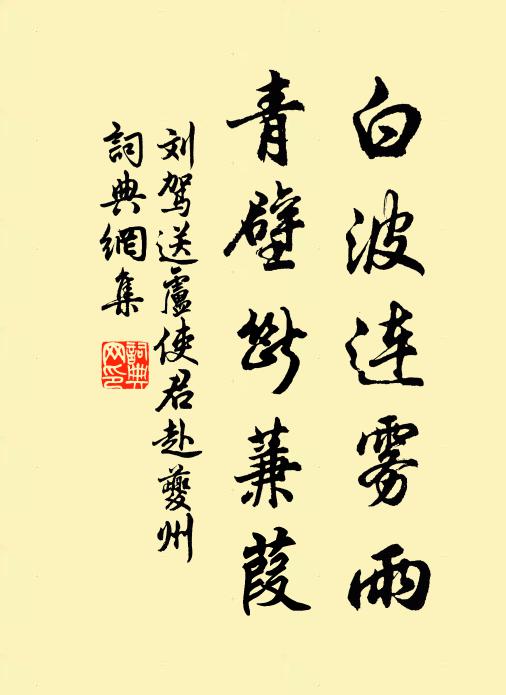 白波连雾雨
青壁断蒹葭
刘驾送盧使君赴夔州
詞典網集
詞典網印